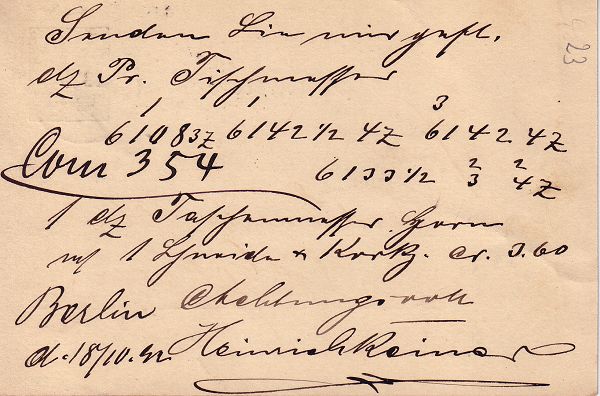 Senden Sie mir gefl.
dz Pr. Tischmesser
1 1 3
6108 3Z 6142 1/2 4Z 6142 4Z
Com 354 6133 1/2 2/3 2/4Z
1 dz Taschenmesser Horn
m/ 1 Schneide & Korkz. cr. 3.60
Berlin Achtungsvoll
d. 18/10. 92 Heinrich Reiner
23